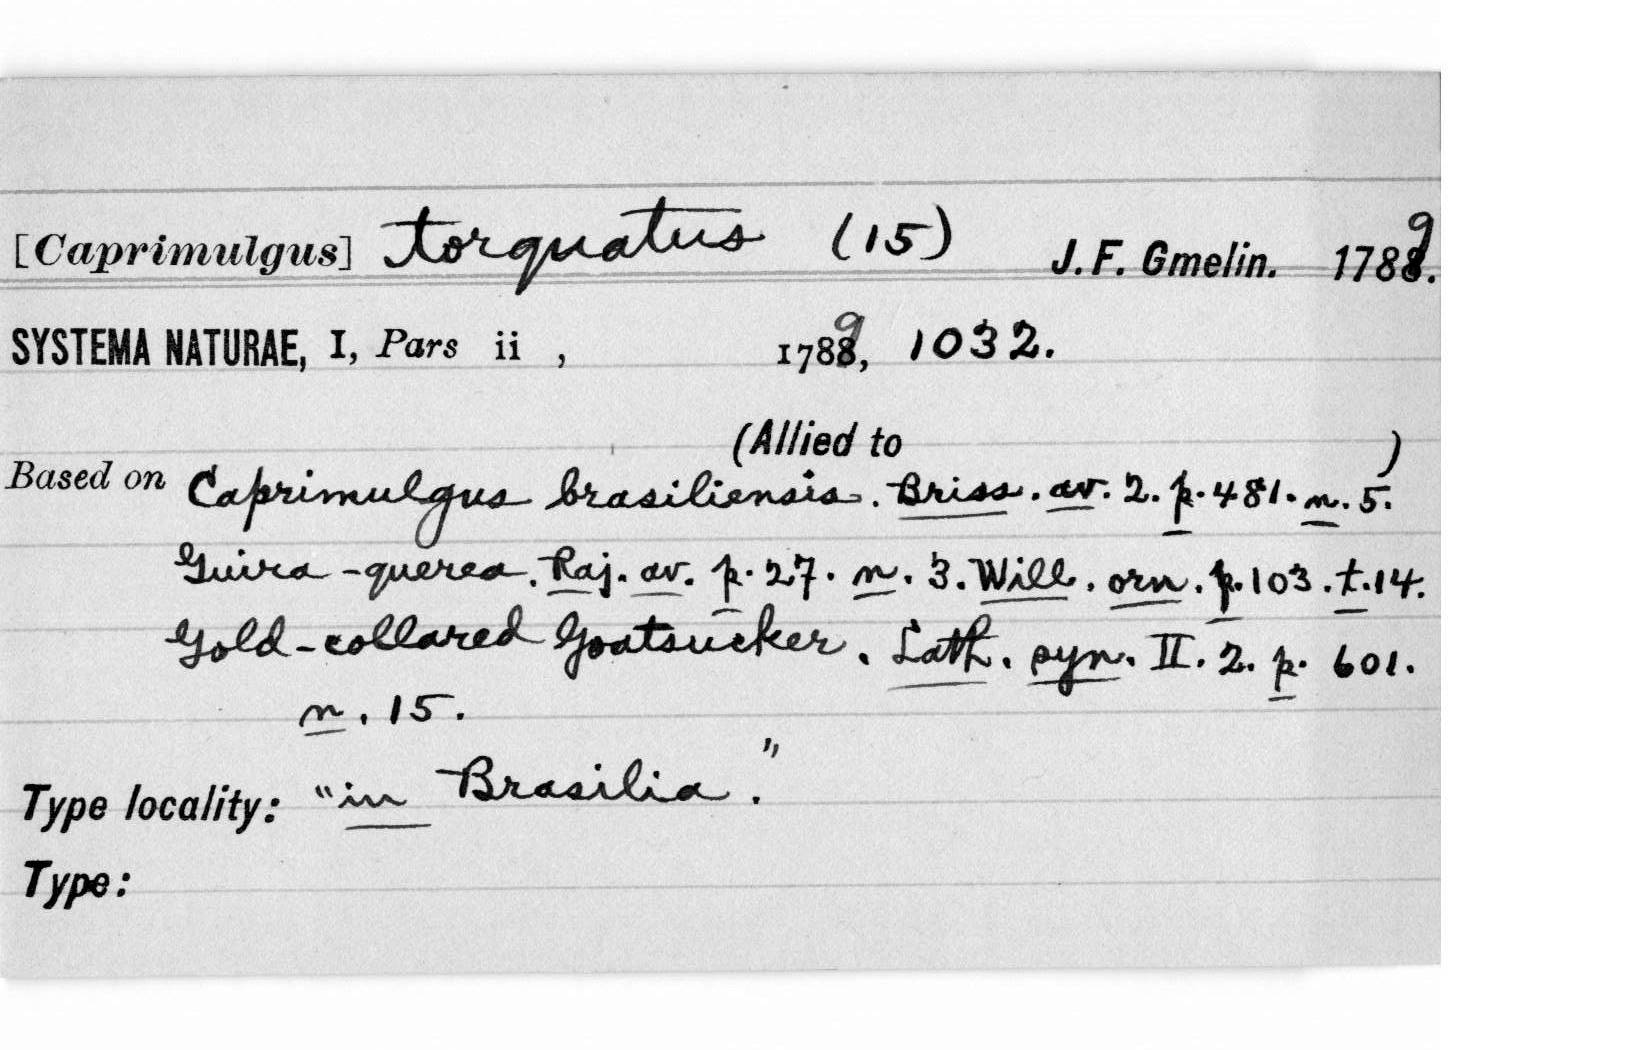 [Caprimulgus] torquatus (15) J. F. Gmelin. 1789.
SYSTEMA NATURAE, I, Pars ii , 1789, 1032.
(Allied to )
Based on Caprimulgus brasiliensis. Briss. av. 2. p. 481. n. 5.
Guira-querea. Raj. av. p. 27. n. 3. Will. orn. p. 103. t. 14.
Gold-collared Goatsucker. Lath. syn. II. 2. p. 601.
n. 15.
Type locality: "in Brasilia."
Type: